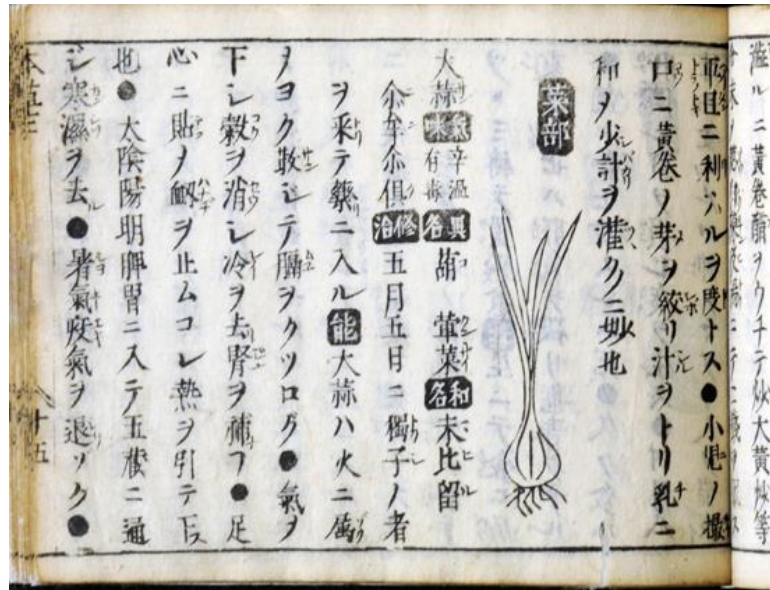 灌ルニ黄卷
市目ニ利アルヲ陵トス●小児ノ撮
口ニ黄卷ノ芽ヲ絞リ汁ヲトリ乳ニ
和ヲ少計ヲ灌クニ妙也
菜部
大蒜 氣味 辛温有毒 異名 葫 葷菜 和名 末比留
尒牟尒俱 修治 五月五日ニ獨子ノ者
ヲ采テ藥ニ入ル 能 大蒜ハ火ニ属
ヲヨク散シテ膈ヲクツログ●氣ヲ
下シ穀ヲ消シ冷ヲ去腎ヲ補フ●足
心ニ貼メ衂ヲ止ムコレ熱ヲ引テ下ス
也●太陰陽明脾胃ニ入テ五蔵ニ通
シ寒濕ヲ去ル●暑氣疫氣ヲ退ソク●
十五